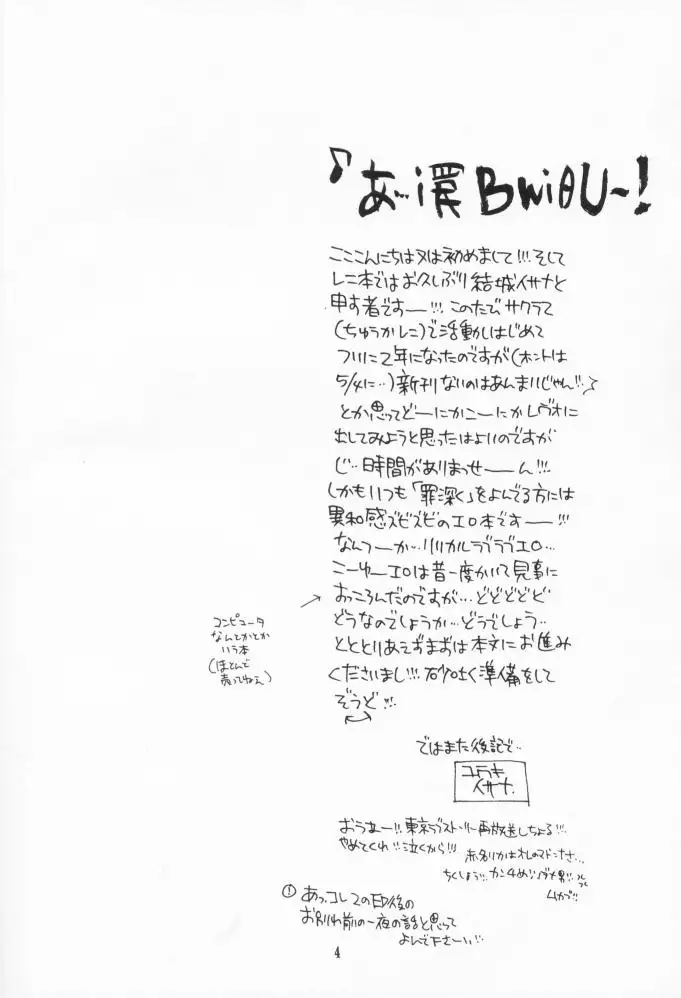 こここんにちは又は初めまして!!!そして
レニ本ではお久しぶり結城イサナと
申す者ですー!!!このたびサクラで
(ちゅうかレニ)で活動しはじめて
ついに2年になったのですが(ホントは
5/4に…)新刊ないのはあんまいじゃん!!
とか思ってどーにかこーにかレヴォに
出してみようと思ったはよいのですが
じ…時間がありまっせーーん!!!
しかもいつも「罪深く」をよんでる方には
異和感ズビズビのエロ本ですー!!!
なんつーか…リリカルラブラブエロ…
こーゆーエロは昔一度かいて見事に
おっころんだのですが…どどどどど
どうなのでしょうか…どうでしょう…
とととりあえずまずは本文にお進み
くださいまし!!!砂吐く準備をして
ぞうど!!!
コンピュータ
なんとかとか
いう本
(ほとんど
売ってねえ)
ではまた後記で…
ユウキ
イサナ
おうねー!!東京ラブストーリー再放送しちょる!!!
やめてくれ!!泣くから!!!
赤名リカはオレのマドンナさ…
ちくしょう!!カンチめ!!ダメ男!!
ムカプ!!
! あっコレ2の印後の
お別れ前の一夜の話と思って
よんで下さーい!!
4